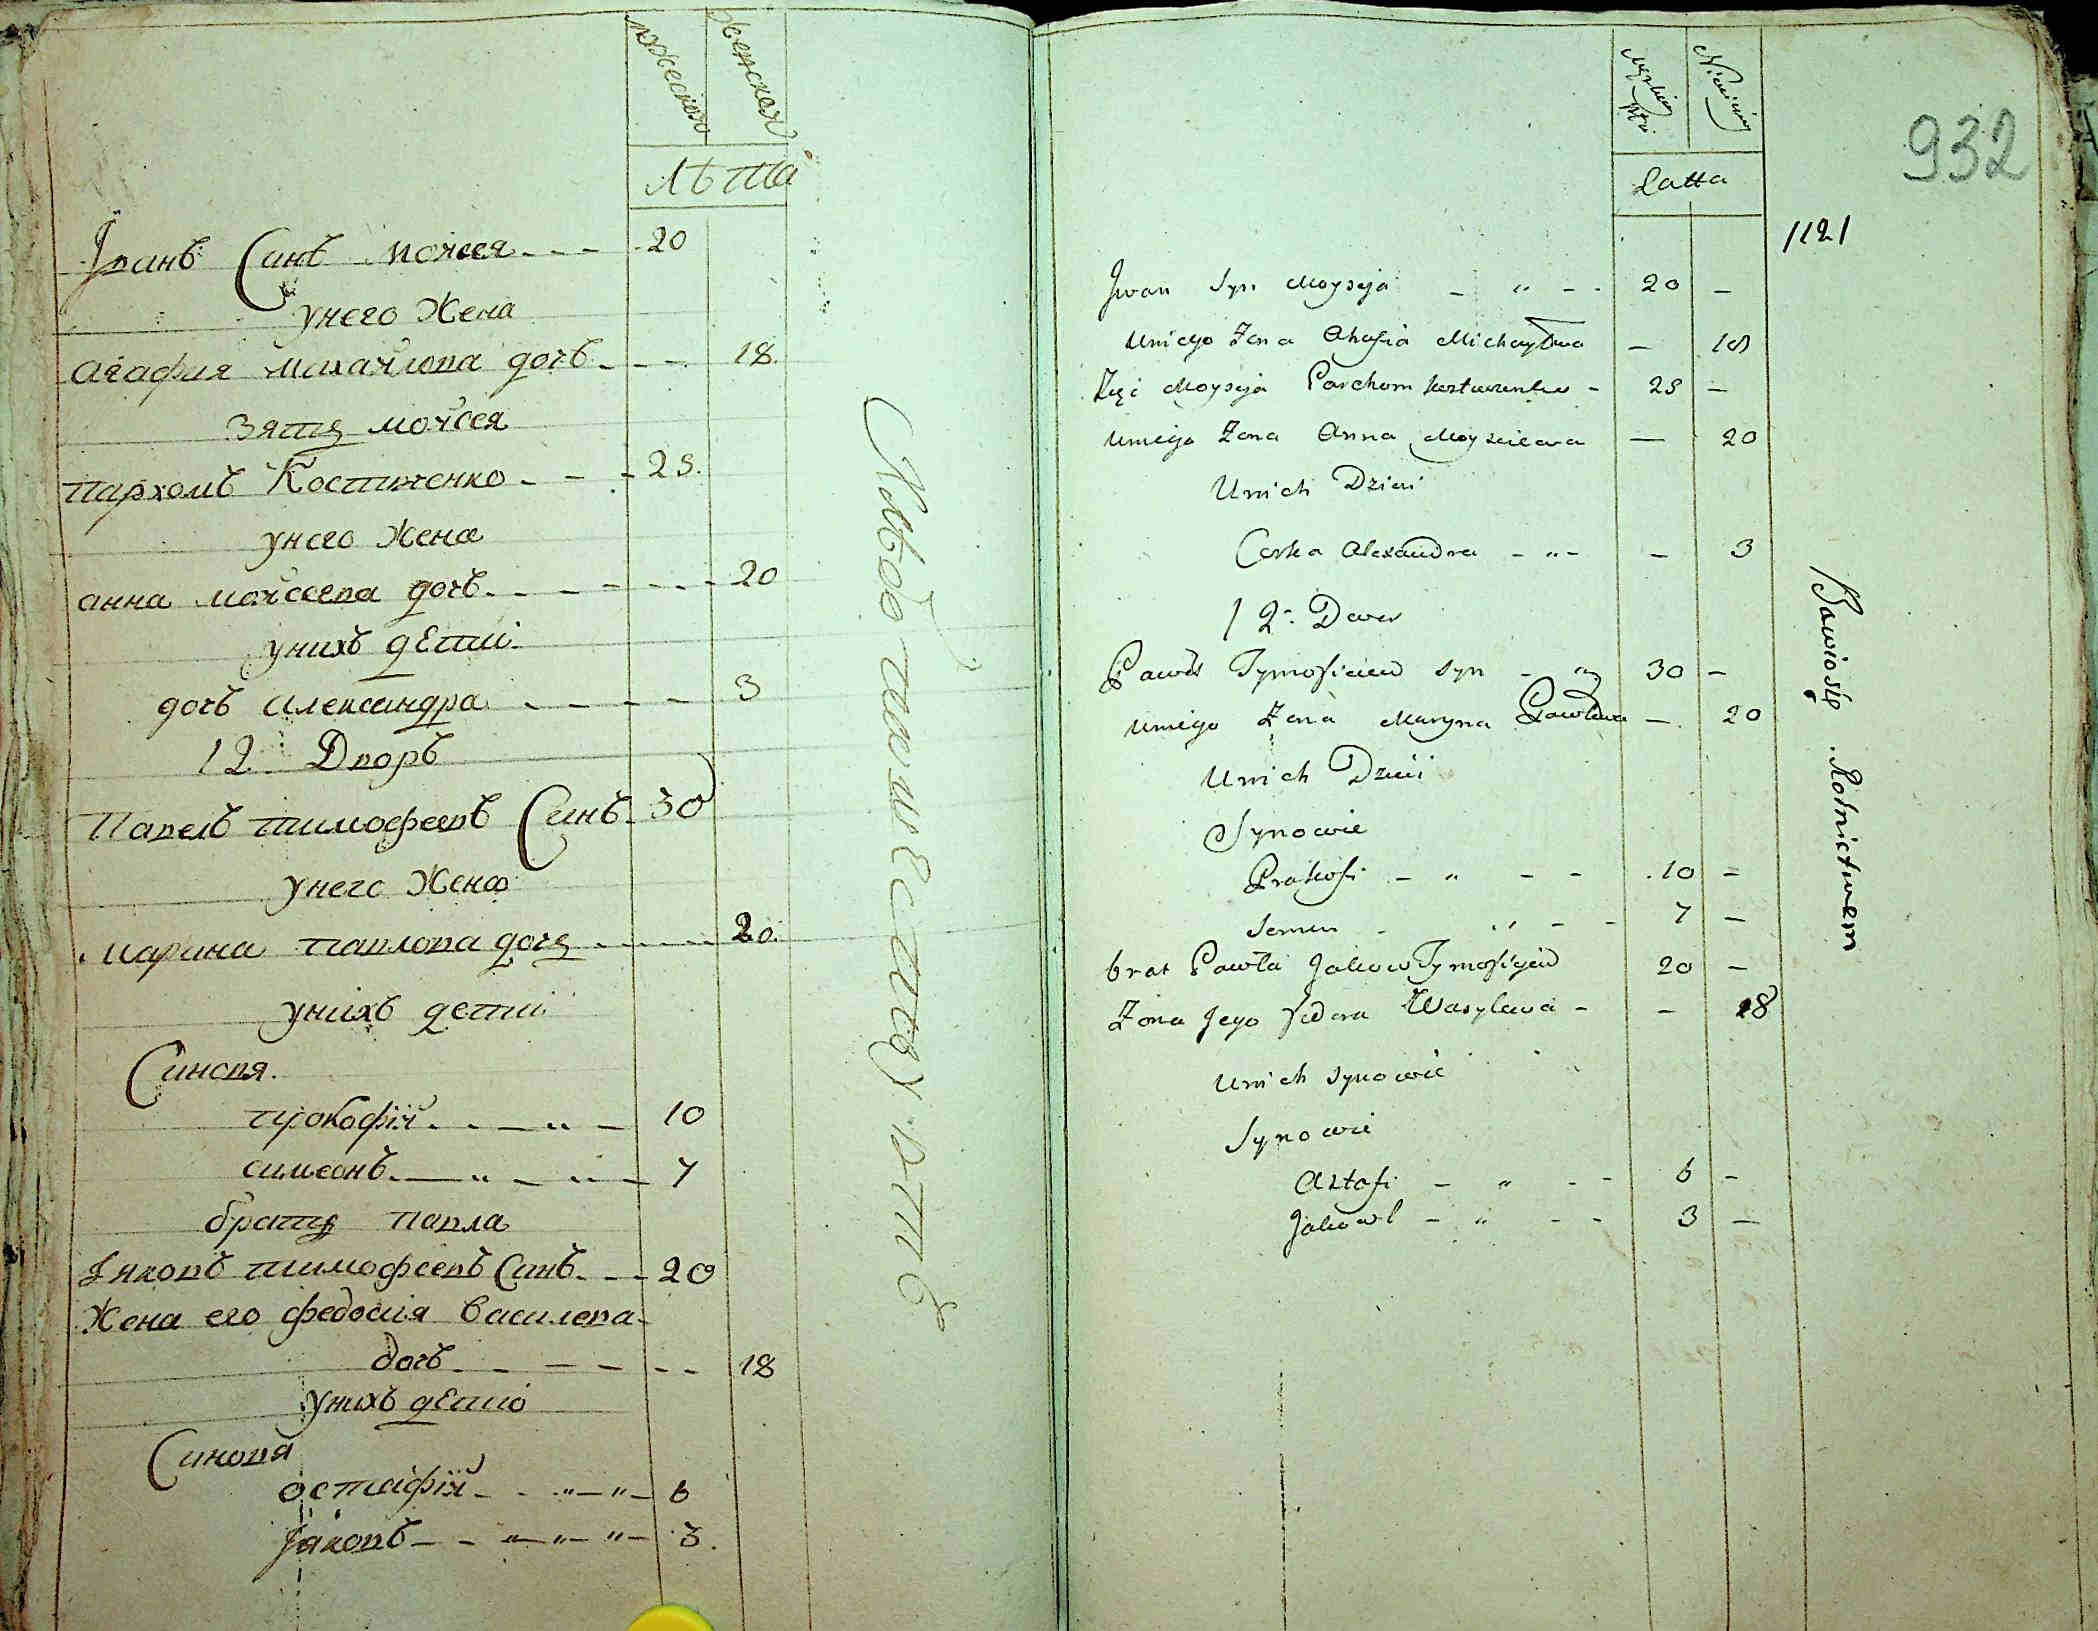 мужеска
женская
лѣта
Іванъ Синъ мойсея - - - 20
унего Жена
агафия михайлова дочъ - - - 18
Зятя мойсея
пархомъ Костюченко - - - 25
унего Жена
анна мойсеева дочъ - - - 20
унихъ дети
дочъ александра - - - 3
12 Дворъ
Павелъ тимофеевъ Синъ 30
унего Жена
марина павлова дочя - - - 20
унихъ дети
Синовя
прокофій - - - 10
симеонъ - - - 7
братя павла
Іяковъ тимофеевъ Синъ - - - 20
Жена его федосия василева
дочъ - - - 18
унихъ дети
Синовя
остафій - - - 6
Іяковъ - - - 3
932
Latta
1121
Jwan Syn Moyseja - „ - - 20 -
Uniego Zona Ahafia Michayłowa - 18
Zięć Moyseja Parchom - 25 -
Uniego Zona Anna Moysiewa - 20
Unich Dzieci
Corka Alexandra - „ - - 3
12: Dwor
Paweł Tymofieiew syn - „ 30 -
Uniego Zona Maryna Pawłowa - 20
Unich Dzieci
Synowie
Prakofi - „ - - 10 -
Semen - „ - - 7 -
brat Pawła Jakow Tymofiejew 20 -
Zona Jego Fedora Wasylewa - - 18
Unich synowie
Synowie
Astafi - „ - - 6 -
Jakowl - „ - - 3 -
Bawią się Rolnictwem